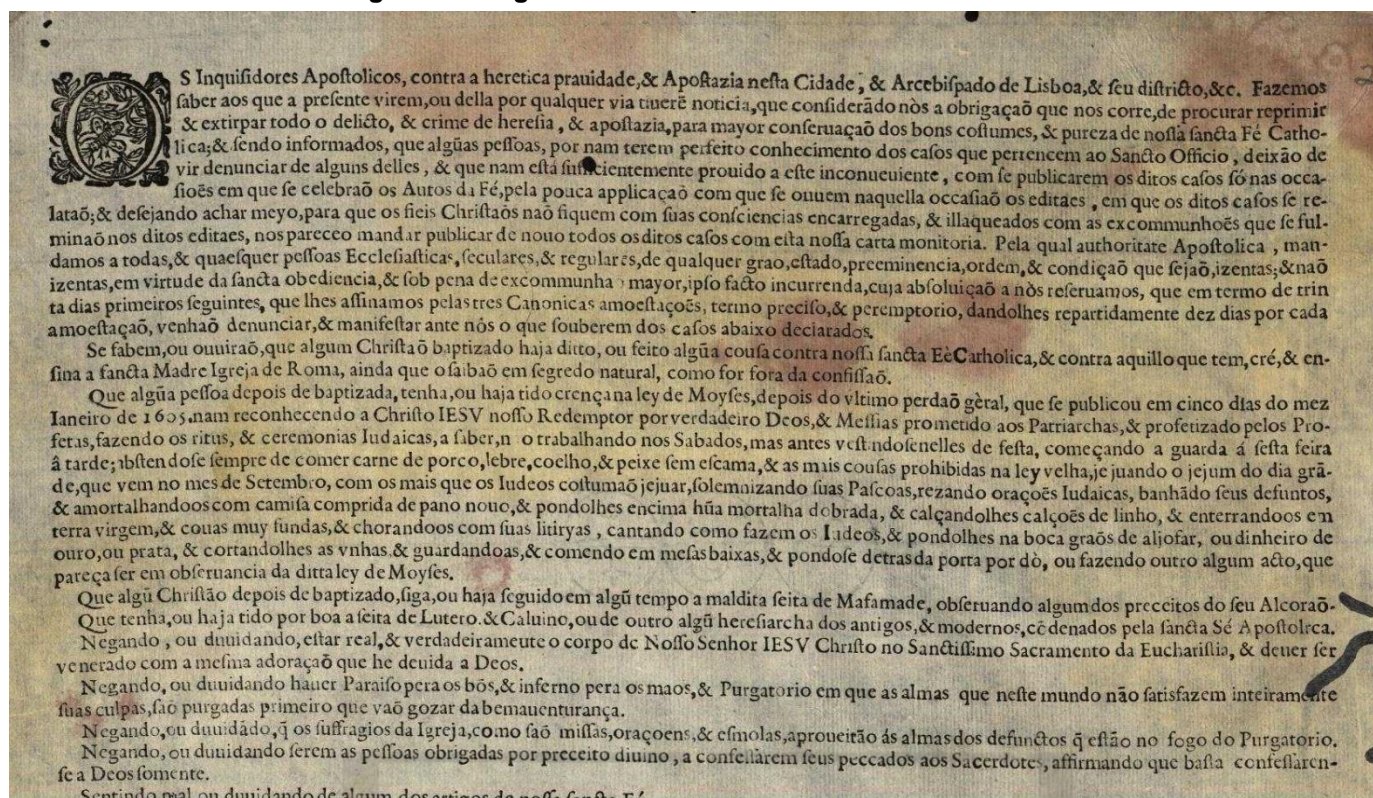 OS Inquiſidores Apoſtolicos, contra a heretica prauidade, & Apoſtazia neſta Cidade, & Arcebiſpado de Lisboa, & ſeu diſtricto, &c. Fazemos
ſaber aos que a preſente virem, ou della por qualquer via tiuerẽ noticia, que conſiderãdo nòs a obrigaçaõ que nos corre, de procurar reprimir
& extirpar todo o delicto, & crime de hereſia, & apoſtazia, para mayor conſeruaçaõ dos bons coſtumes, & pureza de noſſa ſancta Fé Catho-
lica; & ſendo informados, que algũas peſſoas, por nam terem perfeito conhecimento dos caſos que pertencem ao Sancto Officio, deixão de
vir denunciar de alguns delles, & que nam eſtá ſufficientemente prouido a eſte inconueuiente, com ſe publicarem os ditos caſos ſó nas occa-
ſioẽs em que ſe celebraõ os Autos da Fé, pela pouca applicaçaõ com que ſe ouuem naquella occaſiaõ os editaes, em que os ditos caſos ſe re-
lataõ; & deſejando achar meyo, para que os fieis Chriſtaõs naõ fiquem com ſuas conſciencias encarregadas, & illaqueados com as excommunhoẽs que ſe ful-
minaõ nos ditos editaes, nos pareceo mandar publicar de nouo todos os ditos caſos com eſta noſſa carta monitoria. Pela qual authoritate Apoſtolica, man-
damos a todas, & quaeſquer peſſoas Eccleſiaſticas, ſeculares, & regulares, de qualquer grao, eſtado, preeminencia, ordem, & condiçaõ que ſejaõ, izentas; & naõ
izentas, em virtude da ſancta obediencia, & ſob pena de excommunha mayor, ipſo facto incurrenda, cuja abſoluiçaõ a nòs reſeruamos, que em termo de trin
ta dias primeiros ſeguintes, que lhes aſſinamos pelas tres Canonicas amoeſtaçoẽs, termo preciſo, & peremptorio, dandolhes repartidamente dez dias por cada
amoeſtaçaõ, venhaõ denunciar, & manifeſtar ante nós o que ſouberem dos caſos abaixo declarados.
Se ſabem, ou ouuiraõ, que algum Chriſtaõ baptizado haja ditto, ou feito algũa couſa contra noſſa ſancta Eè Catholica, & contra aquillo que tem, cré, & en-
ſina a ſancta Madre Igreja de Roma, ainda que o ſaibaõ em ſegredo natural, como for fora da confiſſaõ.
Que algũa peſſoa depois de baptizada, tenha, ou haja tido crença na ley de Moyſes, depois do vltimo perdaõ gèral, que ſe publicou em cinco dias do mez
Ianeiro de 1605. nam reconhecendo a Chriſto IESV noſſo Redemptor por verdadeiro Deos, & Meſſias prometido aos Patriarchas, & profetizado pelos Pro-
fetas, fazendo os ritus, & ceremonias Iudaicas, a ſaber, n o trabalhando nos Sabados, mas antes veſtindoſe nelles de feſta, começando a guarda á ſeſta feira
â tarde; abſtendoſe ſempre de comer carne de porco, lebre, coelho, & peixe ſem eſcama, & as mais couſas prohibidas na ley velha, jejuando o jejum do dia grã-
de, que vem no mes de Setembro, com os mais que os Iudeos coſtumaõ jejuar, ſolemnizando ſuas Paſcoas, rezando oraçoẽs Iudaicas, banhãdo ſeus defuntos,
& amortalhandoos com camiſa comprida de pano nouo, & pondolhes encima hũa mortalha dobrada, & calçandolhes calçoẽs de linho, & enterrandoos em
terra virgem, & couas muy fundas, & chorandoos com ſuas litiryas, cantando como fazem os Iudeos, & pondolhes na boca graõs de aljofar, ou dinheiro de
ouro, ou prata, & cortandolhes as vnhas, & guardandoas, & comendo em meſas baixas, & pondoſe detras da porta por dò, ou fazendo outro algum acto, que
pareça ſer em obſeruancia da ditta ley de Moyſes.
Que algũ Chriſtão depois de baptizado, ſiga, ou haja ſeguido em algũ tempo a maldita ſeita de Mafamade, obſeruando algum dos preceitos do ſeu Alcoraõ.
Que tenha, ou haja tido por boa a ſeita de Lutero. & Caluino, ou de outro algũ hereſiarcha dos antigos, & modernos, cõdenados pela ſancta Sé Apoſtolrca.
Negando, ou duuidando, eſtar real, & verdadeirameute o corpo de Noſſo Senhor IESV Chriſto no Sanctiſſimo Sacramento da Euchariſtia, & deuer ſer
venerado com a meſma adoraçaõ que he deuida a Deos.
Negando, ou duuidando hauer Paraiſo pera os bõs, & inferno pera os maos, & Purgatorio em que as almas que neſte mundo não ſatisfazem inteiramente
ſuas culpas, ſaõ purgadas primeiro que vaõ gozar da bemauenturança.
Negando, ou duuidãdo, q̃ os ſuffragios da Igreja, como ſaõ miſſas, oraçoens, & eſmolas, aproueitão ás almas dos defunctos q̃ eſtão no fogo do Purgatorio.
Negando, ou duuidando ſerem as peſſoas obrigadas por preceito diuino, a confeſſarem ſeus peccados aos Sacerdotes, affirmando que baſta confeſſaren-
ſe a Deos ſomente.
Sentindo mal, ou duuidando de algum dos artigos da noſſa ſancta Fé